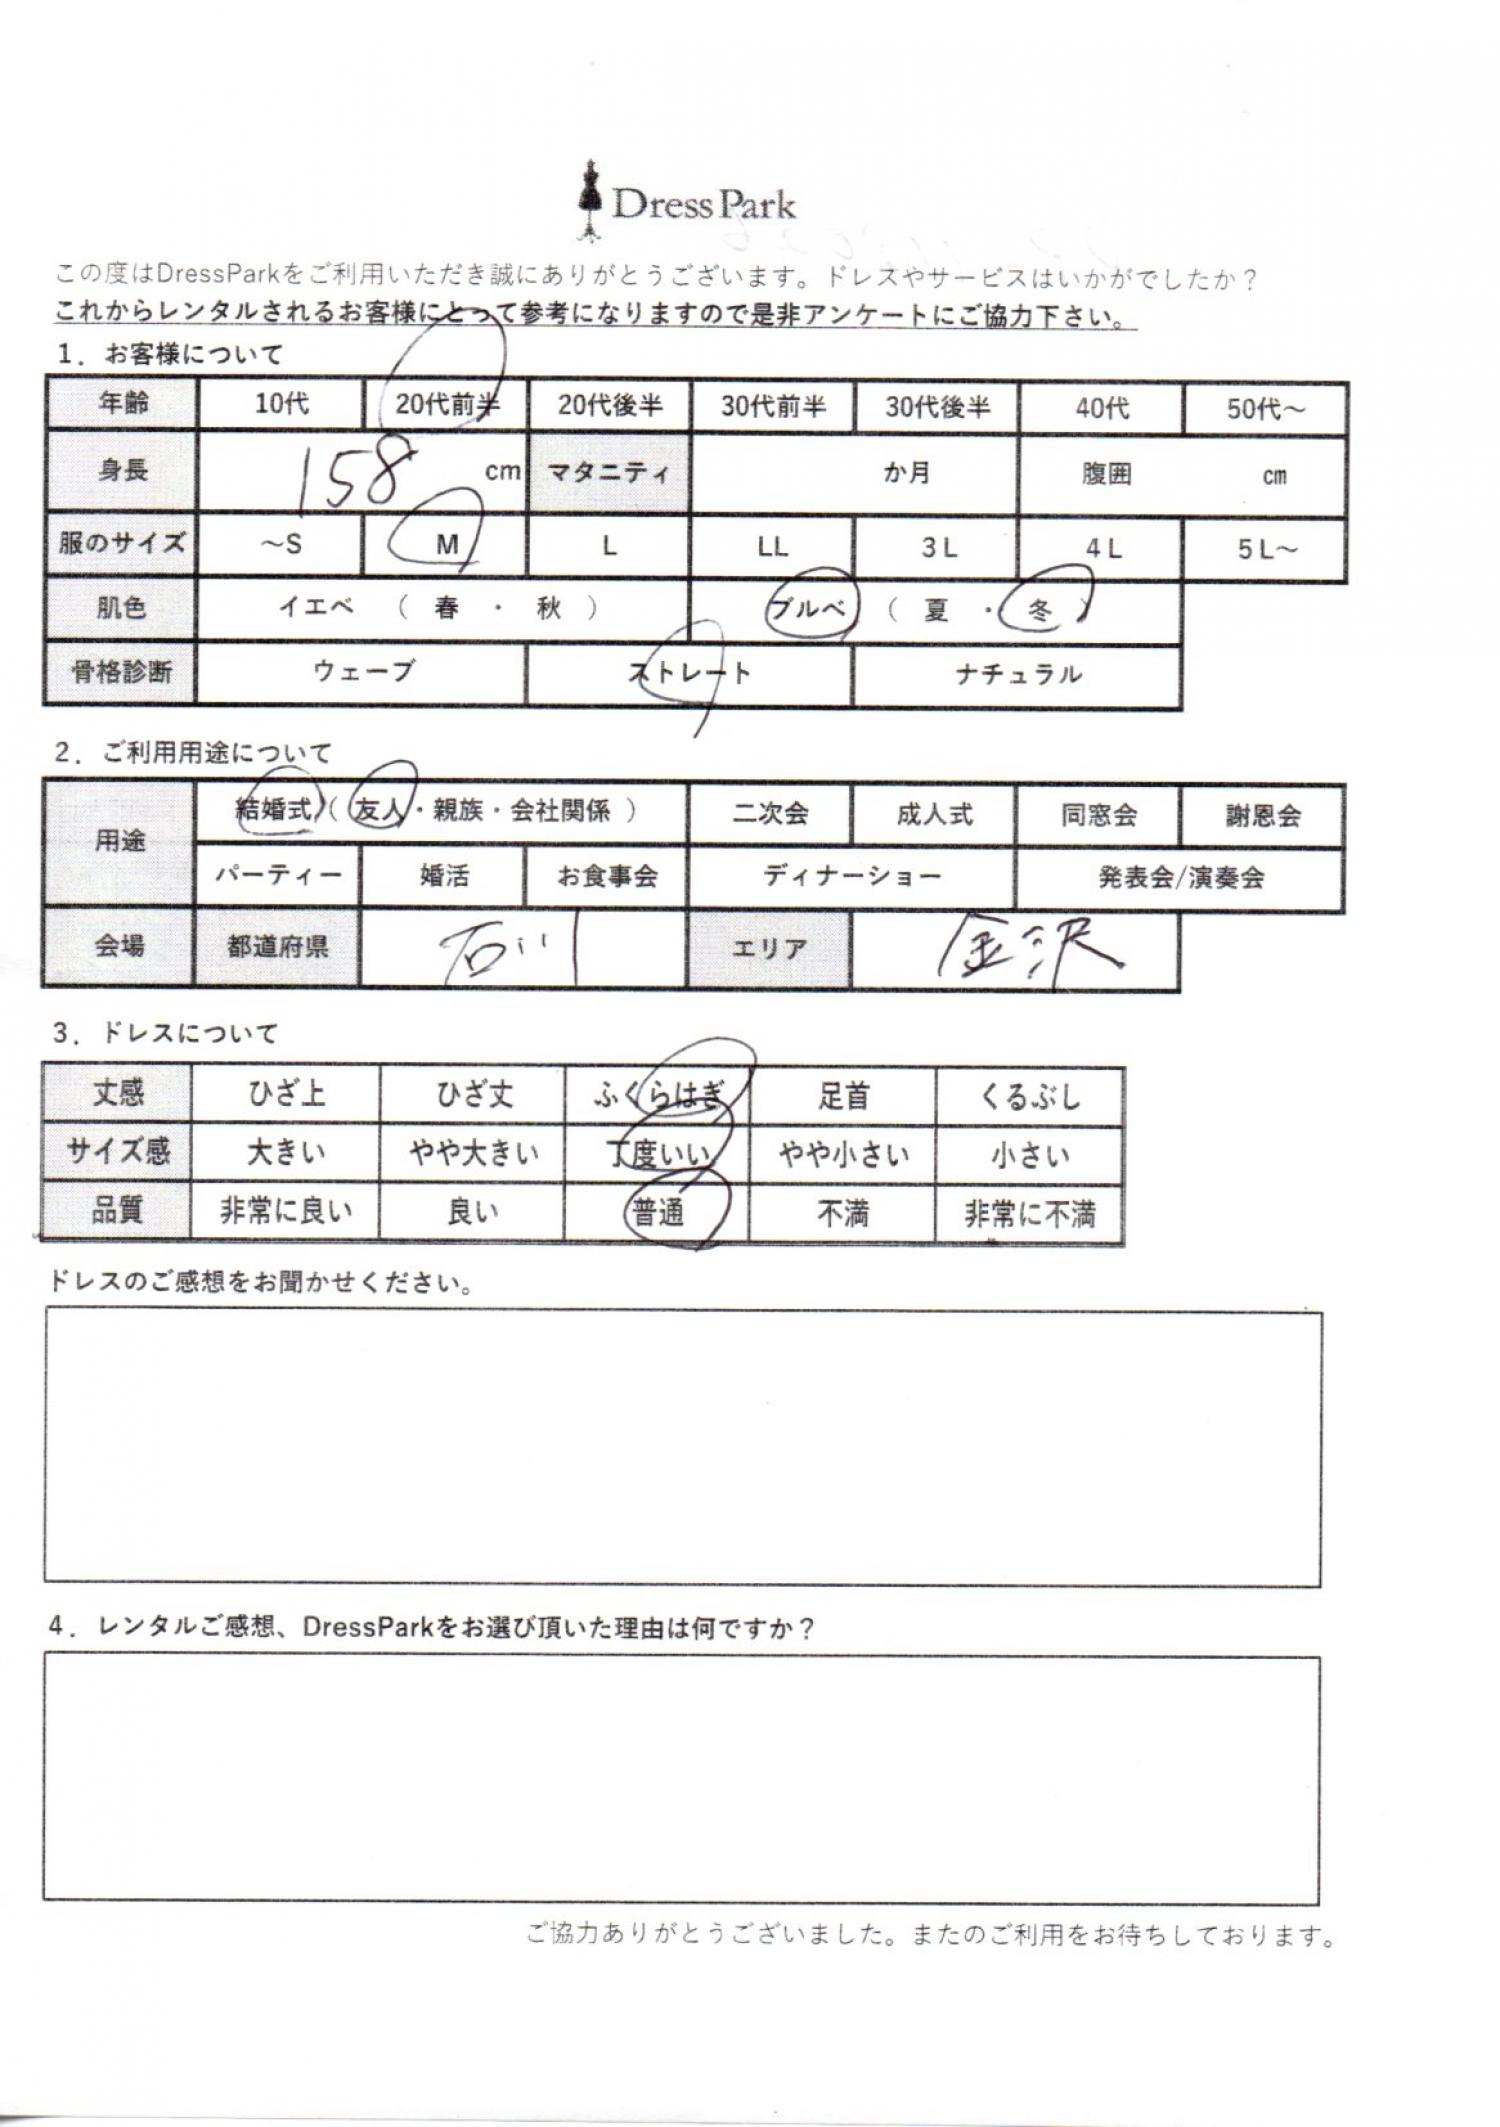 DressPark
この度はDressParkをご利用いただき誠にありがとうございます。ドレスやサービスはいかがでしたか？
これからレンタルされるお客様にとって参考になりますので是非アンケートにご協力下さい。
1．お客様について
年齢 10代 20代前半 20代後半 30代前半 30代後半 40代 50代～
身長 158 cm マタニティ か月 腹囲 cm
服のサイズ ～S M L LL 3L 4L 5L～
肌色 イエベ （ 春 ・ 秋 ） ブルベ （ 夏 ・ 冬 ）
骨格診断 ウェーブ ストレート ナチュラル
2．ご利用用途について
用途 結婚式（ 友人・親族・会社関係 ） 二次会 成人式 同窓会 謝恩会
パーティー 婚活 お食事会 ディナーショー 発表会/演奏会
会場 都道府県 石川 エリア 金沢
3．ドレスについて
丈感 ひざ上 ひざ丈 ふくらはぎ 足首 くるぶし
サイズ感 大きい やや大きい 丁度いい やや小さい 小さい
品質 非常に良い 良い 普通 不満 非常に不満
ドレスのご感想をお聞かせください。
4．レンタルご感想、DressParkをお選び頂いた理由は何ですか？
ご協力ありがとうございました。またのご利用をお待ちしております。